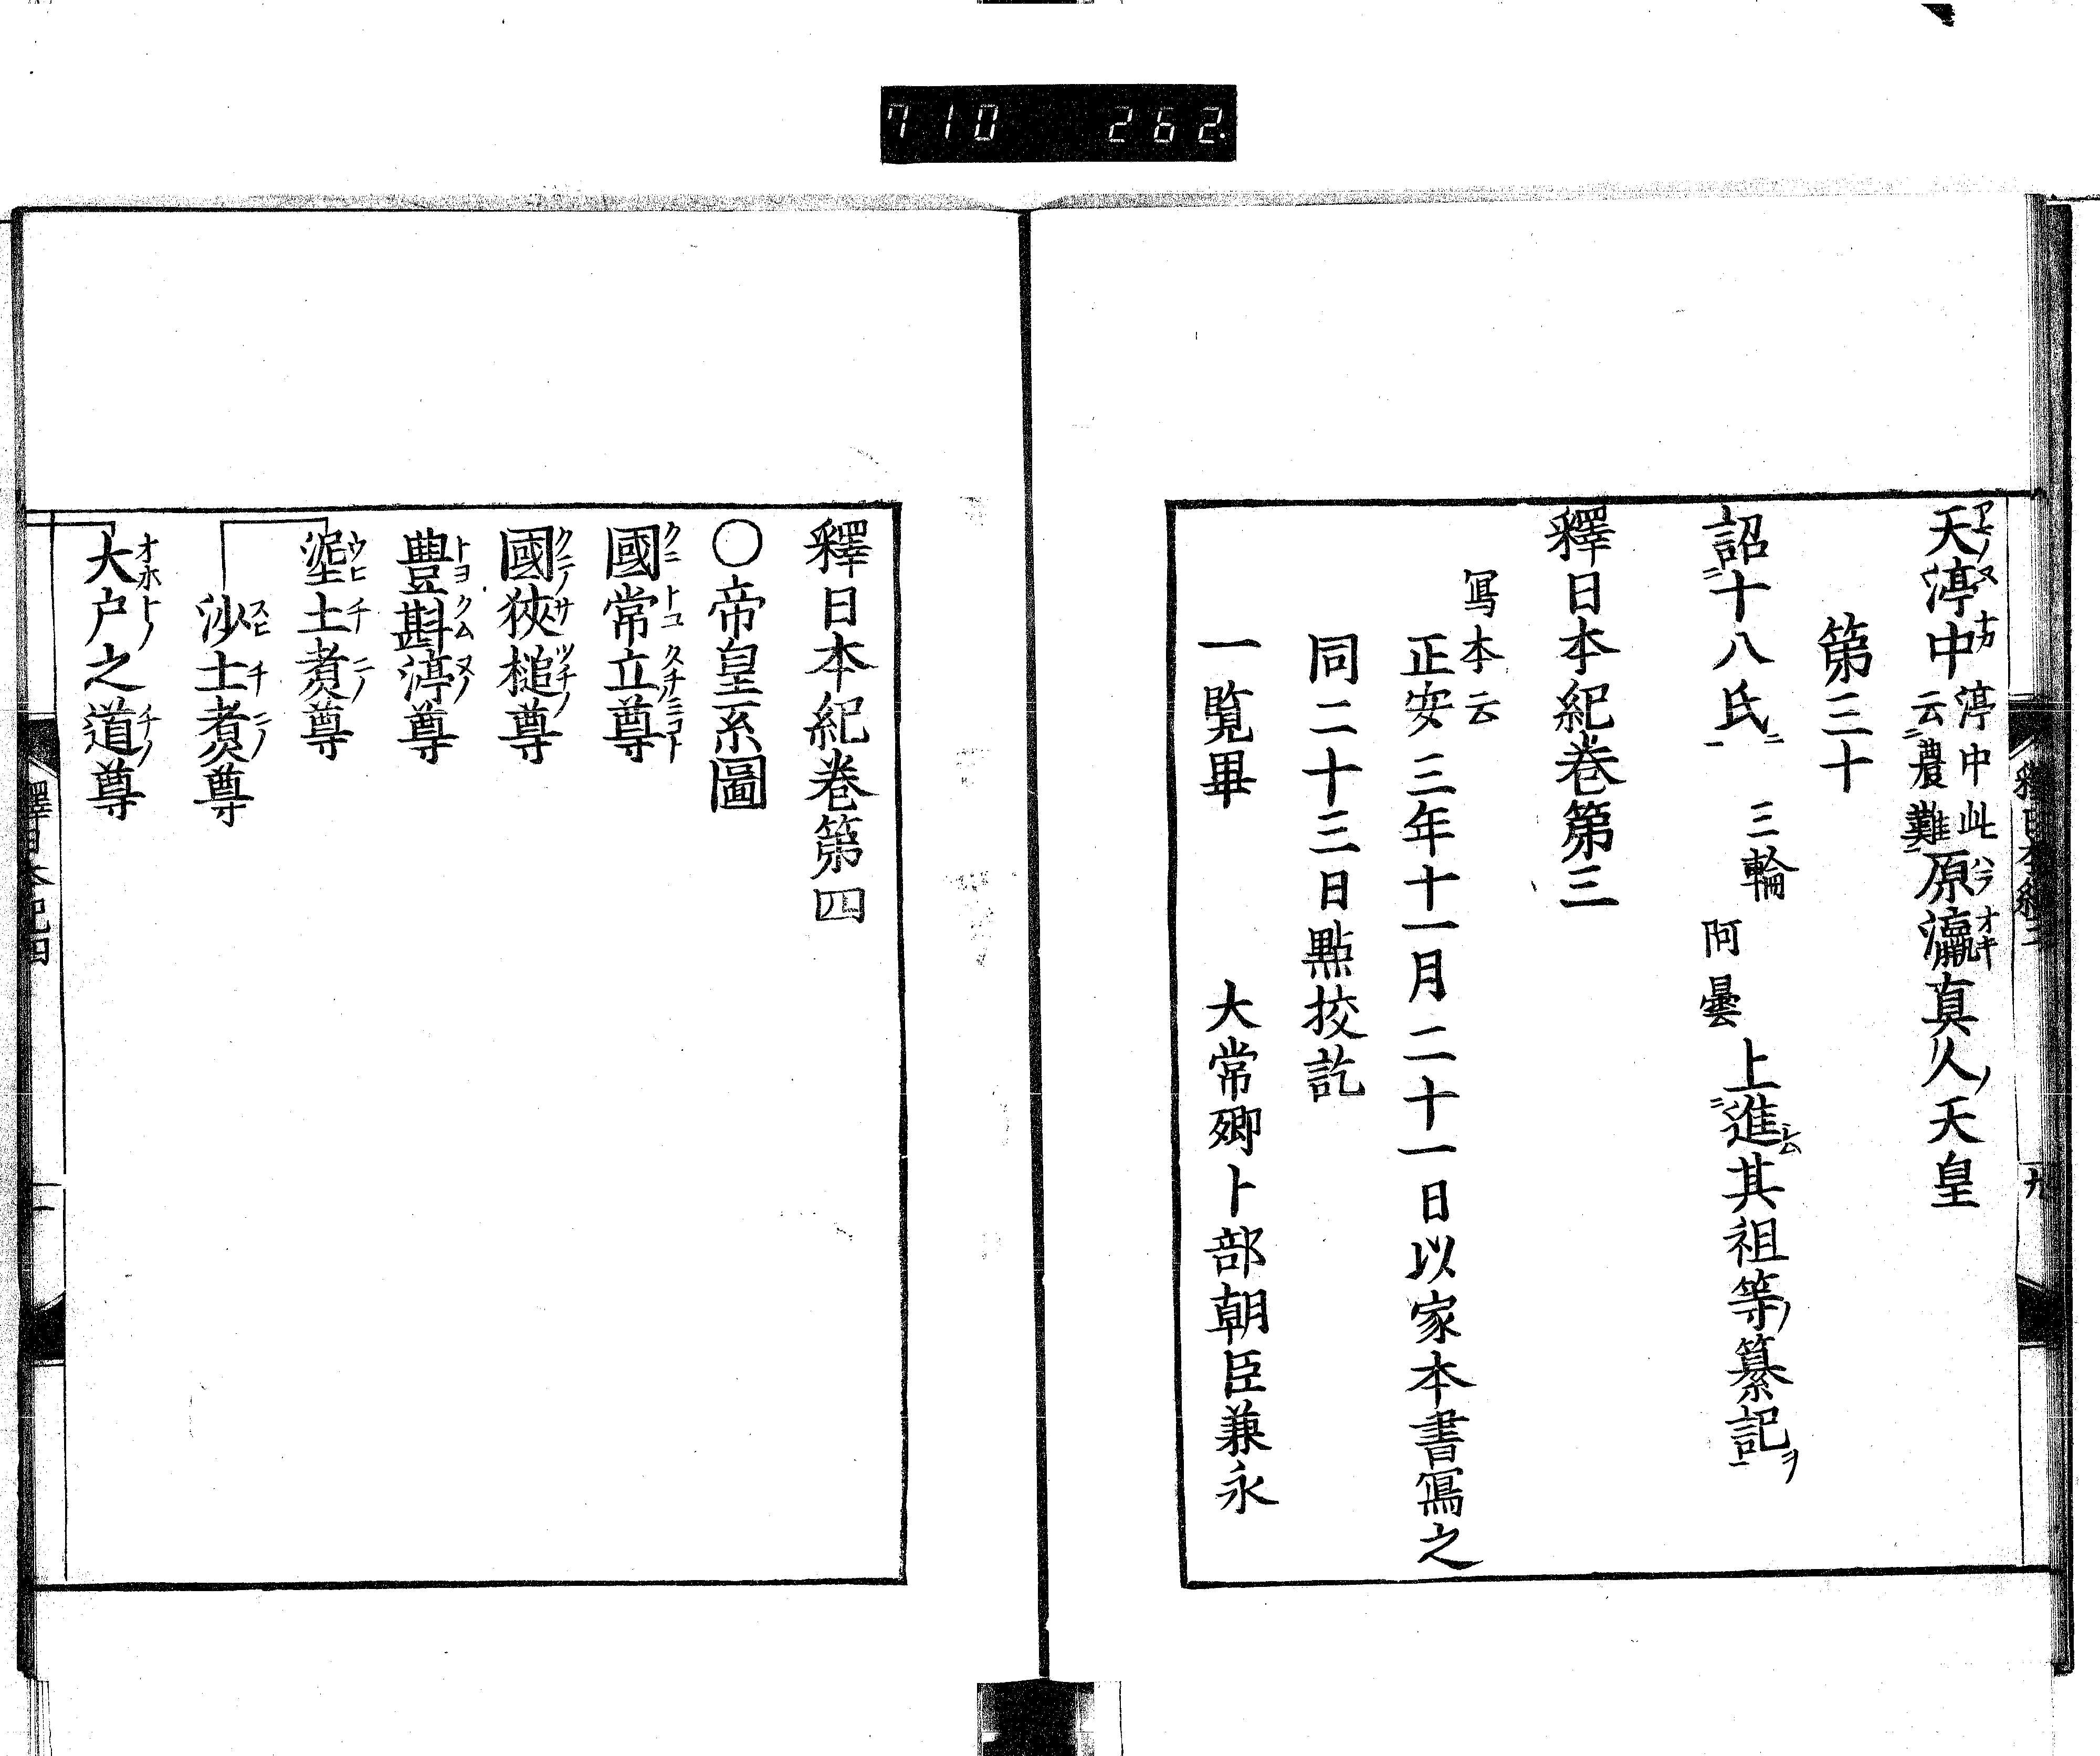 710 262.
天渟中 渟中此云農難 原瀛真人天皇
第三十
詔十八氏 三輪 阿曇 上進其祖等纂記
釋日本紀巻第三
寫本云
正安三年十一月二十一日以家本書寫之
同二十三日點挍訖
一覧畢 大常卿卜部朝臣兼永
釋日本紀巻第四
〇帝皇系圖
國常立尊
國狹槌尊
豊斟渟尊
埿土煑尊
沙土煑尊
大户之道尊
釋日本紀四
一